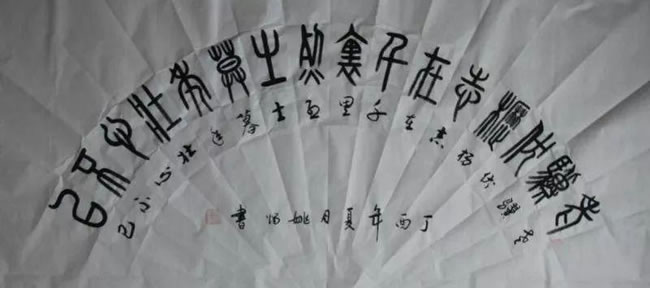 老驥伏櫪志在千裏烈士莫年壯心不已
老骥伏枥志在千里烈士暮年壮心不已
丁酉年夏月姚書